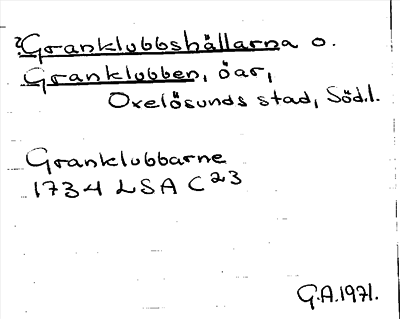 ?Granklubbshällarna o.
Granklubben, öar,
Oxelösunds stad, Södl.
Granklubbarne
1734 LSA C23
G.A.1971.